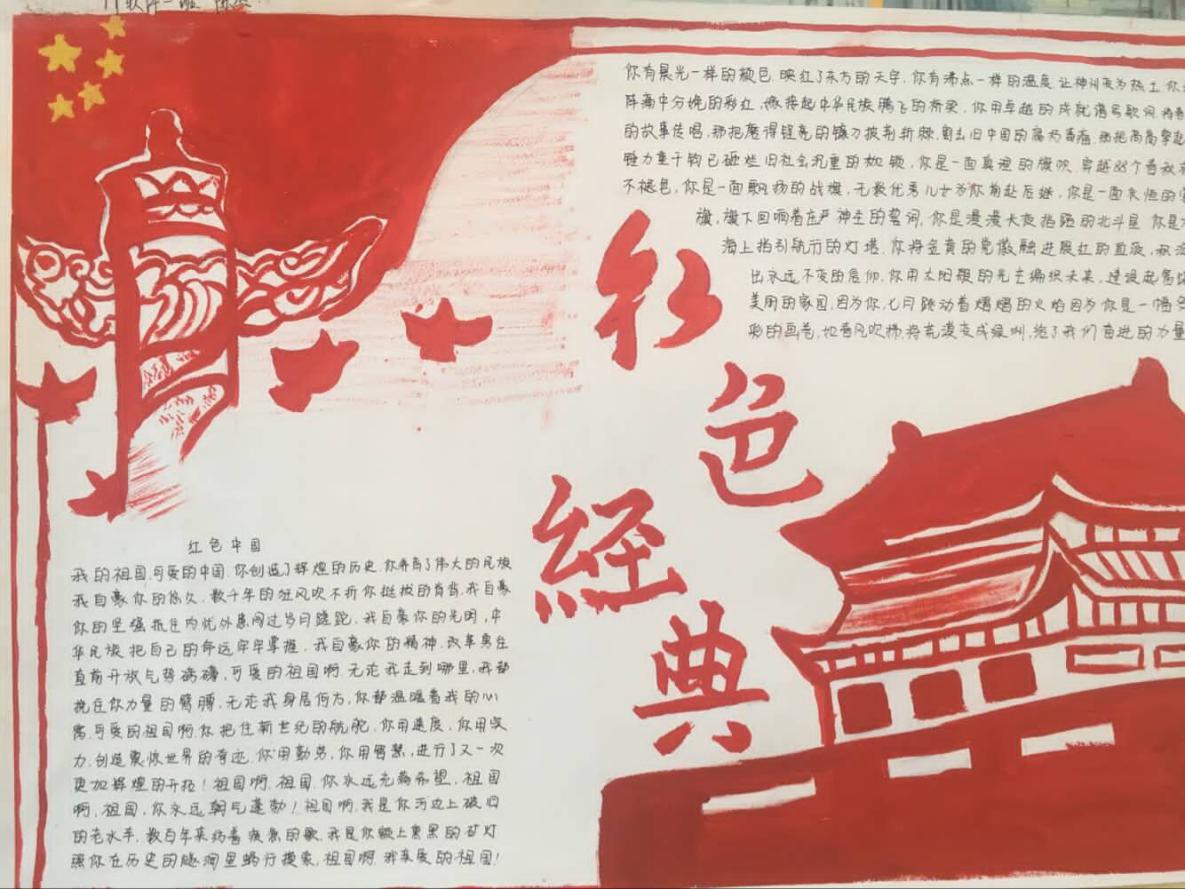 你有晨光一样的颜色,映红了东方的天宇,你有沸点一样的温度,让神州成为热土,你
阵痛中分娩的彩虹,嫁接起中华民族腾飞的桥梁,你用卓越的成就谱写歌词,将
的故事传唱,那把磨得锃亮的镰刀披荆斩棘,割去旧中国的腐朽毒瘤,那把高高擎起
锤力重千钧已砸烂旧社会沉重的枷锁,你是一面真理的旗帜,穿越88个春秋
不褪色,你是一面飘扬的战旗,无数优秀儿女为你前赴后继,你是一面永恒的
旗,旗下回响着庄严神圣的誓词,你是漫漫长夜指路的北斗星,你是
海上指引航行的灯塔,你将金黄的党徽融进殷红的血液,
出永远不变的信仰,你用太阳般的光芒编织未来,建设起富
美丽的家园,因为你,七月跳动着熠熠的火焰因为你是一幅
彩的画卷,
红
色
經
典
红色中国
我的祖国,可爱的中国,你创造了辉煌的历史,你养育了伟大的民族
我自豪你的悠久,数千年的狂风吹不折你挺拔的脊背,我自豪
你的坚强,抵住内忧外患闯过岁月蹉跎,我自豪你的光明,中
华民族把自己的命运牢牢掌握,我自豪你的精神,改革勇往
直前开放气势磅礴,可爱的祖国啊,无论我走到哪里,我都
挽住你力量的臂膊,无论我身居何方,你都温暖着我的心
窝,可爱的祖国啊,你把住新世纪的航舵,你用速度,你用实
力,创造震惊世界的奇迹,你用勤劳,你用智慧,进行了又一次
更加辉煌的开拓!祖国啊,祖国,你永远充满希望,祖国
啊,祖国,你永远朝气蓬勃!祖国啊,我是你河边上破旧
的老水车,数百年来纺着疲惫的歌,我是你额上熏黑的矿灯
照你在历史的隧洞里蜗行摸索,祖国啊,我亲爱的祖国!